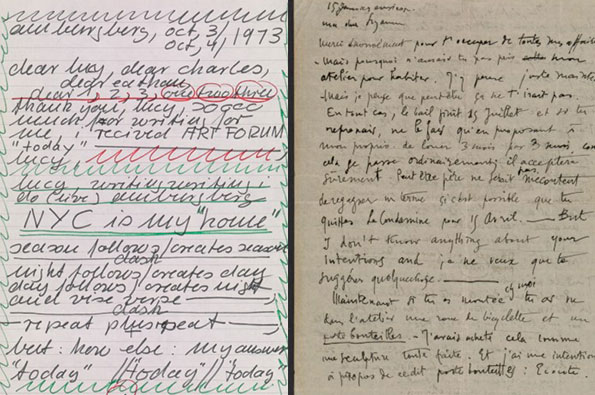 amibersberg, oct, 3,
oct, 4, 1973
dear lucy, dear charles,
dear
dear 1, 2, 3, one two three
thank you, lucy, so
much, for writing, for
me, i recived ART FORUM
"today"
lucy,
lucy, writing, writing,
NYC is my "home"
season follows/creates season
clash
night follows/creates day
day follows/creates night
and vise verse
clash
repeat plus repeat
but: how else: my answer
"today" "today" "today"
15 Janvier environ
ma chère Suzanne
Merci énormément pour t'occuper de toutes mes affaires
- Mais pourquoi n'aurais tu pas pris mon
atelier pour habiter. J'y pense juste maintenant
Mais je pense que peut-être ça ne t'irait pas.
En tout cas, le bail finit 15 Juillet et si tu
reprenais, ne le fais qu'en proposant à
mon proprio de louer 3 mois par 3 mois, comme
cela se passe ordinairement; il acceptera
sûrement. Peut être père ne serait pas mécontent
de regagner un terme si c'est possible que tu
quittes La Condamine pour 15 avril. — But
I don't know anything about your
intentions and je ne veux que te
suggérer quelque chose. —
Maintenant si tu es montée chez moi tu as vu
dans l'atelier une roue de bicyclette et un
porte bouteilles. - J'avais acheté cela comme
une sculpture toute faite. Et j'ai une intention
à propos de ce dit porte bouteilles : Ecoute.